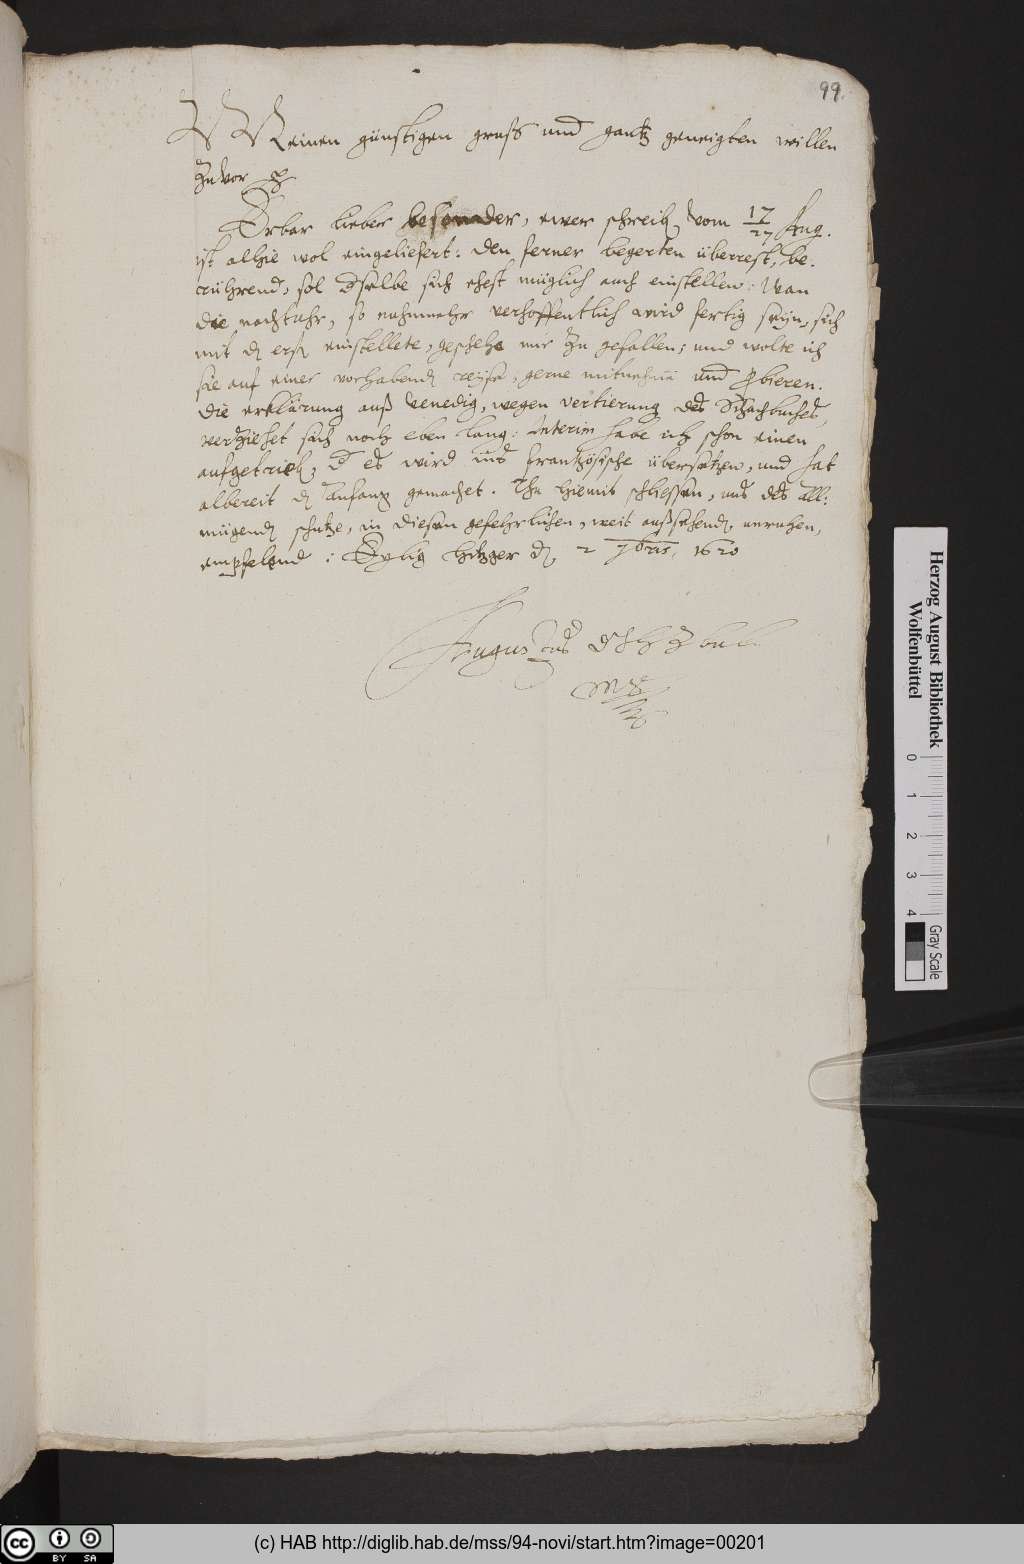 99.
Meinen günstigen gruß und gantz geneigten willen
Zuvor
Erbar lieber besonder, ewer schreib vom 17/27 Aug.
ist alhie wol eingeliefert: den ferner begerten überrest, be-
rührend, sol dselbe sich ehest müglich auch einstellen: Wan
die nachtuhr, so nuhnmehr verhoffentlich wird fertig seyn, sich
mit d erst einstellete, geschehe mir zu gefallen; und wolte ich
sie auf einer vorhabend reyse, gerne mitnehme und probieren.
Die erklärung auß Venedig, wegen vertierung des Schachbuches,
verziehet sich noch eben lang: Interim habe ich schon einen
aufgetrieb, d es wird ins frantzösische übersetzen, und hat
albereit d anfang gemachet. Thu hiemit schliessen, uns des All-
mügend schutze, in diesen gefehrlichen, weit außsehend, unruhen,
empfelend: Eylig Hitzger d 2 7bris, 1620
Augustus
Herzog August Bibliothek
Wolfenbüttel
0 1 2 3 4
Gray Scale
cc BY SA
(c) HAB http://diglib.hab.de/mss/94-novi/start.htm?image=00201